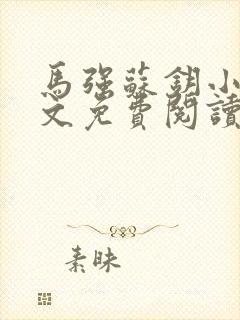 馬強蘇鈅小
文免費閱讀
素昧